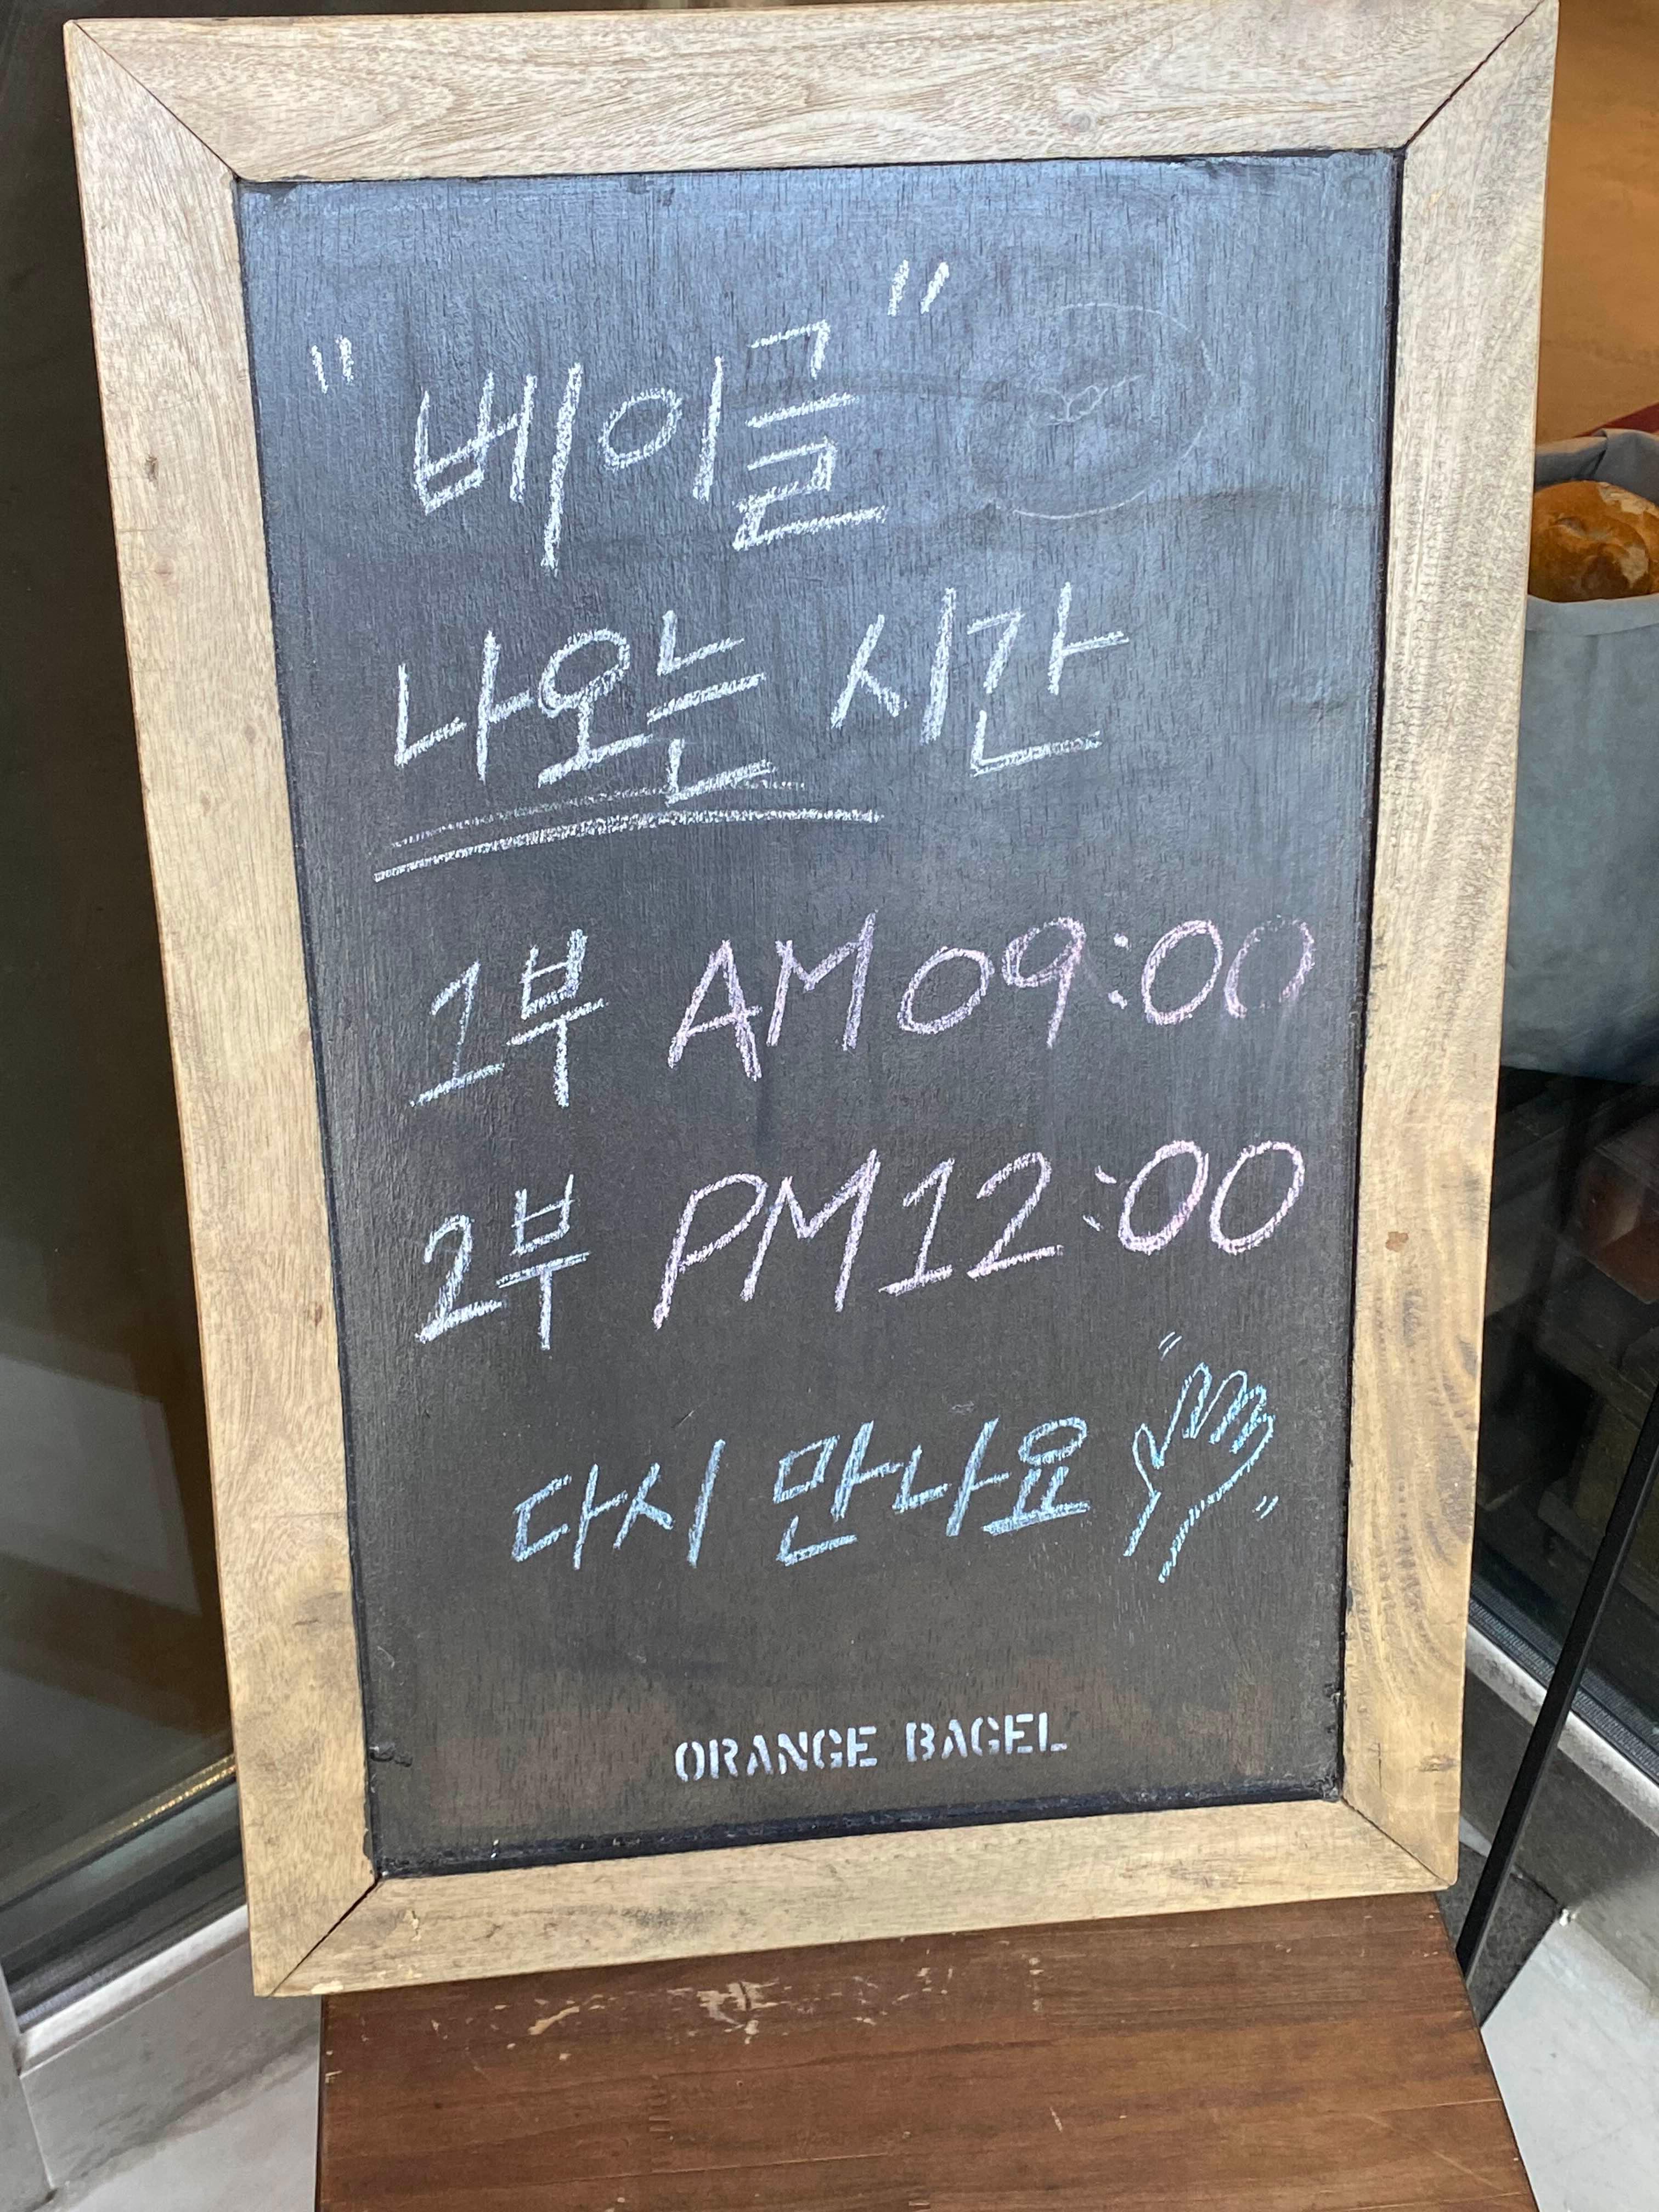 "베이글"
나오는 시간
1부 AM 09:00
2부 PM 12:00
다시 만나요
ORANGE BAGEL